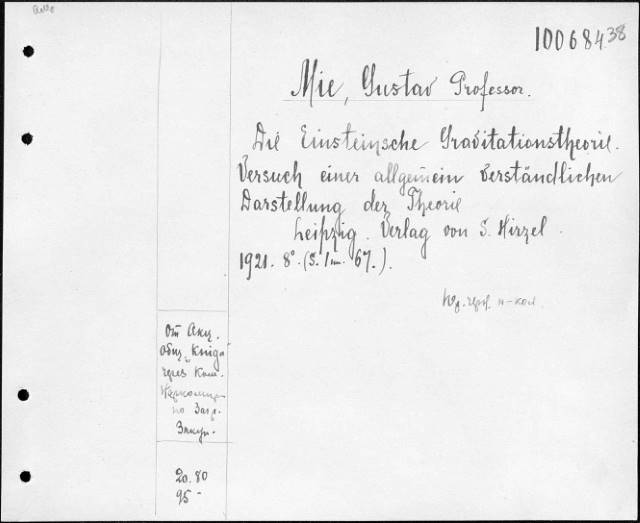 10068438
Mie, Gustav Professor.
Die Einsteinsche Gravitationstheorie.
Versuch einer allgemein verständlichen
Darstellung der Theorie
Leipzig. Verlag von S. Hirzel.
1921. 8°. (S. 1 m. 67.).
От Акц.
общ. „Книга"
через Ком.
по Загр.
Закуп.
20.80
95-